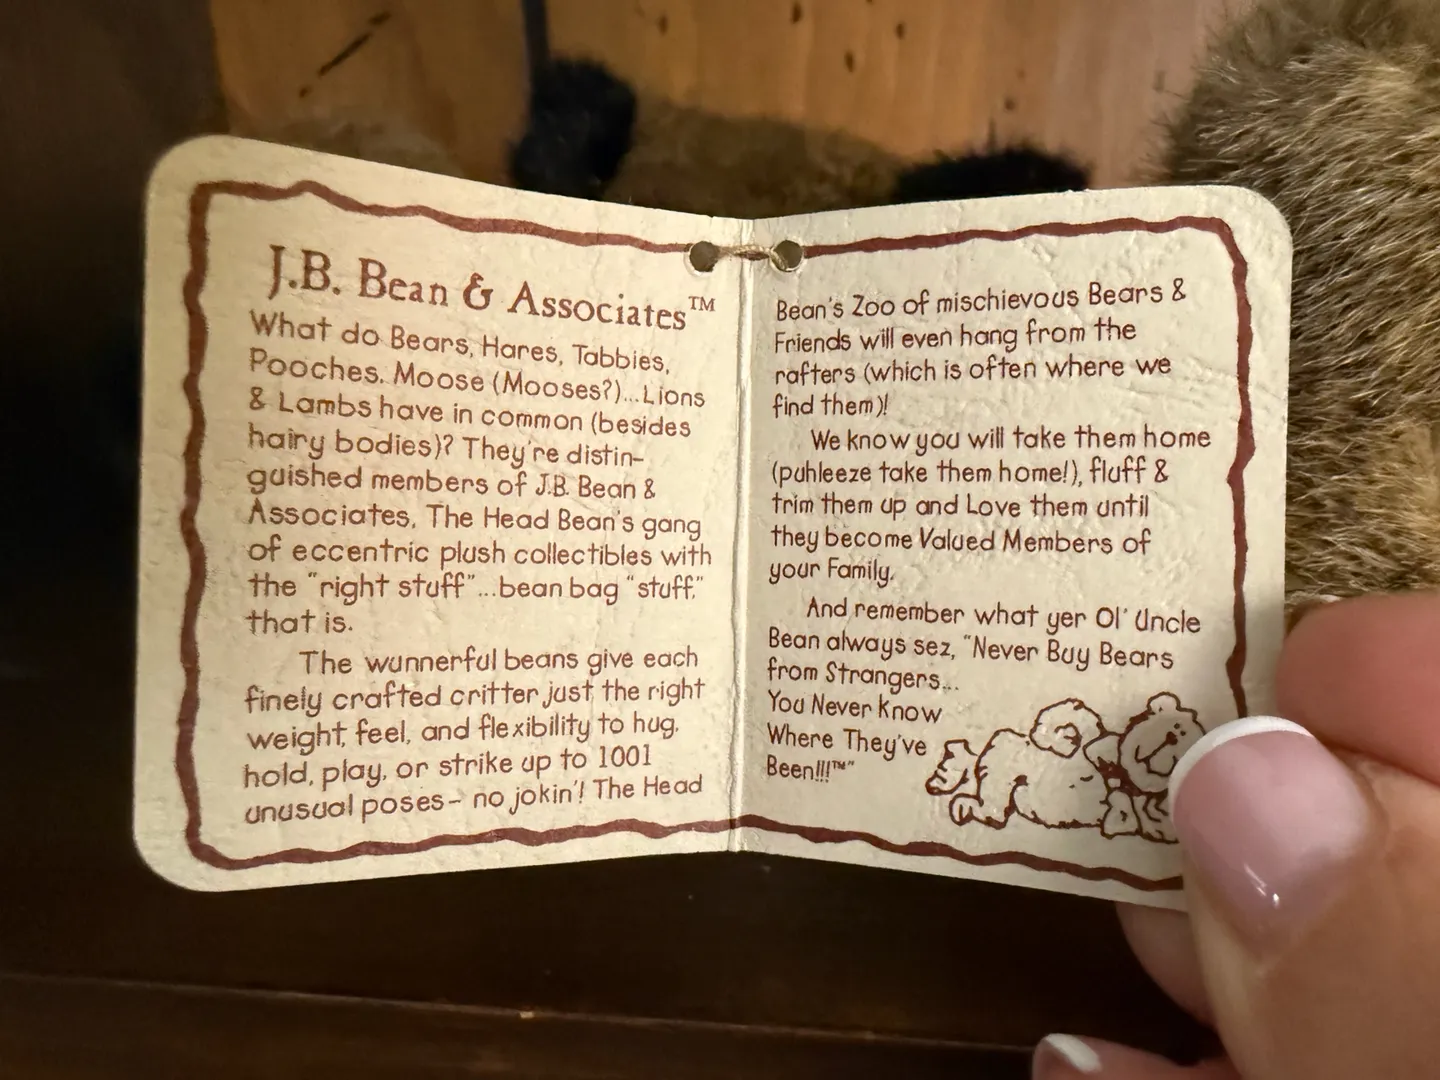 J.B. Bean & Associates™
What do Bears, Hares, Tabbies,
Pooches, Moose (Mooses?)...Lions
& Lambs have in common (besides
hairy bodies)? They're distin-
guished members of J.B. Bean &
Associates, The Head Bean's gang
of eccentric plush collectibles with
the "right stuff"...bean bag "stuff,"
that is.
The wunnerful beans give each
finely crafted critter just the right
weight, feel, and flexibility to hug,
hold, play, or strike up to 1001
unusual poses- no jokin'! The Head
Bean's Zoo of mischievous Bears &
Friends will even hang from the
rafters (which is often where we
find them)!
We know you will take them home
(puhleeze take them home!), fluff &
trim them up and Love them until
they become Valued Members of
your Family.
And remember what yer Ol' Uncle
Bean always sez, "Never Buy Bears
from Strangers...
You Never Know
Where They've
Been!!!™"